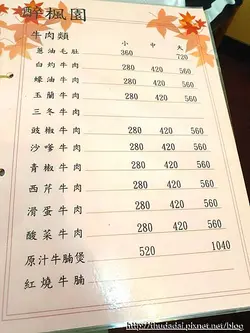 醉楓園
牛肉類
小 中 大
蔥油毛肚 360 720
白灼牛肉 280 420 560
蠔油牛肉 280 420 560
玉蘭牛肉 280 420 560
三冬牛肉
豉椒牛肉 280 420 560
沙嗲牛肉 280 420 560
青椒牛肉 280 420 560
西芹牛肉 280 420 560
滑蛋牛肉 280 420 560
酸菜牛肉 280 420 560
原汁牛腩煲 520 1040
紅燒牛腩